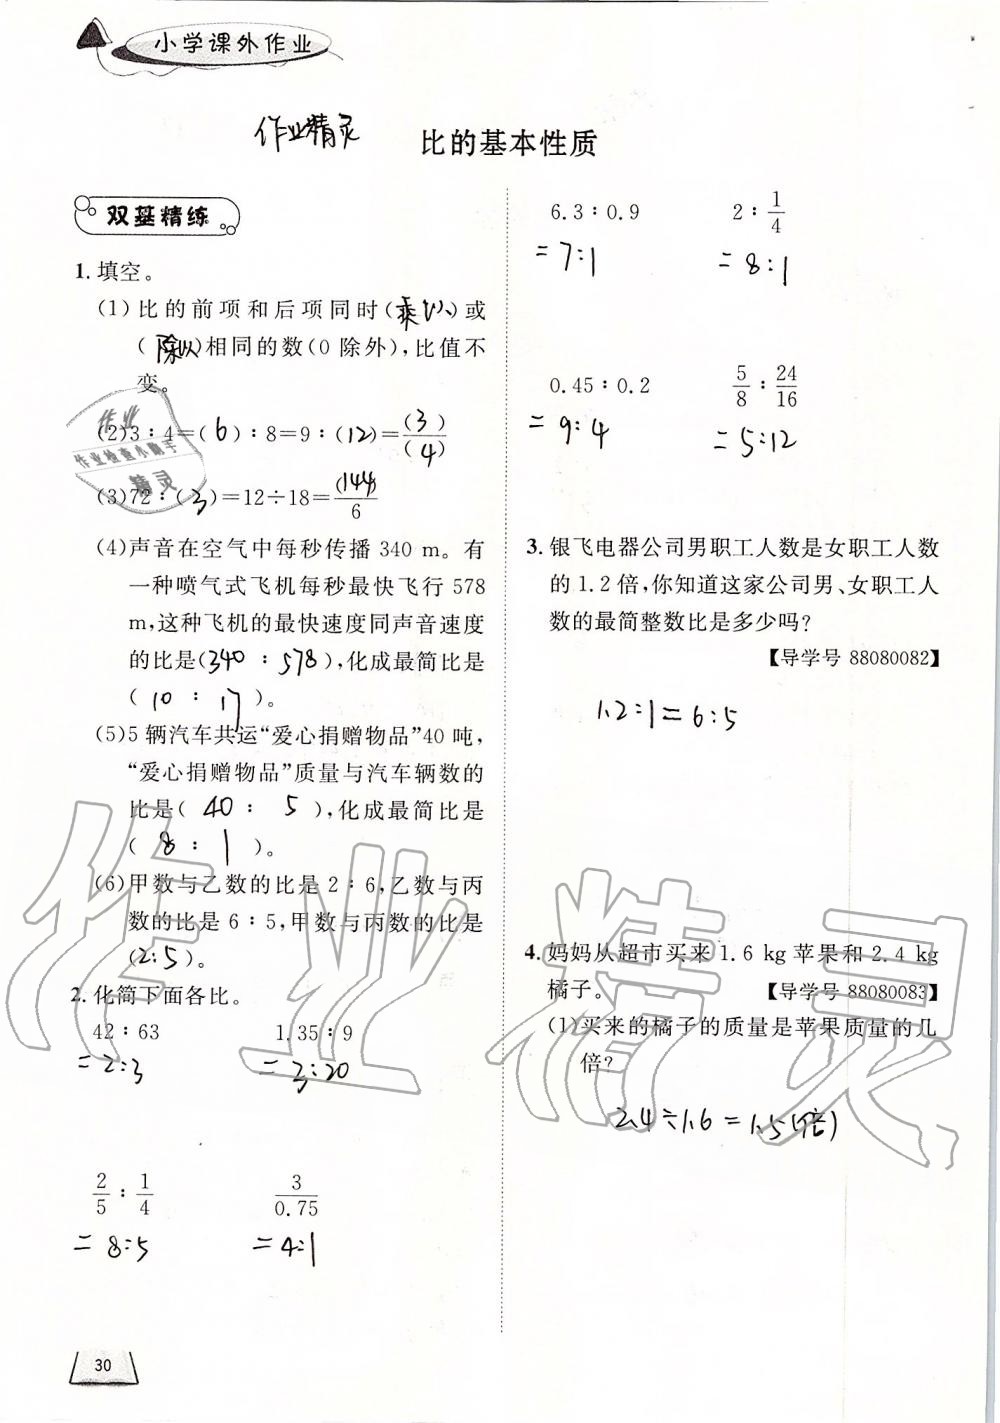 小学课外作业
作业精灵
比的基本性质
双基精练
1. 填空。
(1)比的前项和后项同时(乘以)或
(除以)相同的数(0除外),比值不
变。
(2)3∶4=(6)∶8=9∶(12)=(3)/(4)
(3)72∶(3)=12÷18=(144)/6
(4)声音在空气中每秒传播 340 m。有
一种喷气式飞机每秒最快飞行 578
m,这种飞机的最快速度同声音速度
的比是(340∶578),化成最简比是
(10∶17)。
(5)5 辆汽车共运“爱心捐赠物品”40 吨,
“爱心捐赠物品”质量与汽车辆数的
比是(40∶5),化成最简比是
(8∶1)。
(6)甲数与乙数的比是 2∶6,乙数与丙
数的比是 6∶5,甲数与丙数的比是
(2:5)。
2. 化简下面各比。
42∶63 1.35∶9
=2:3 =3:20
2/5∶1/4 3/0.75
=8:5 =4:1
30
6.3∶0.9 2∶1/4
=7:1 =8:1
0.45∶0.2 5/8∶24/16
=9:4 =5:12
3. 银飞电器公司男职工人数是女职工人数
的 1.2 倍,你知道这家公司男、女职工人
数的最简整数比是多少吗?
【导学号 88080082】
1.2:1=6:5
4. 妈妈从超市买来 1.6 kg 苹果和 2.4 kg
橘子。 【导学号 88080083】
(1)买来的橘子的质量是苹果质量的几
倍?
2.4÷1.6=1.5(倍)
作业
作业检查小助手
精灵
作业精灵